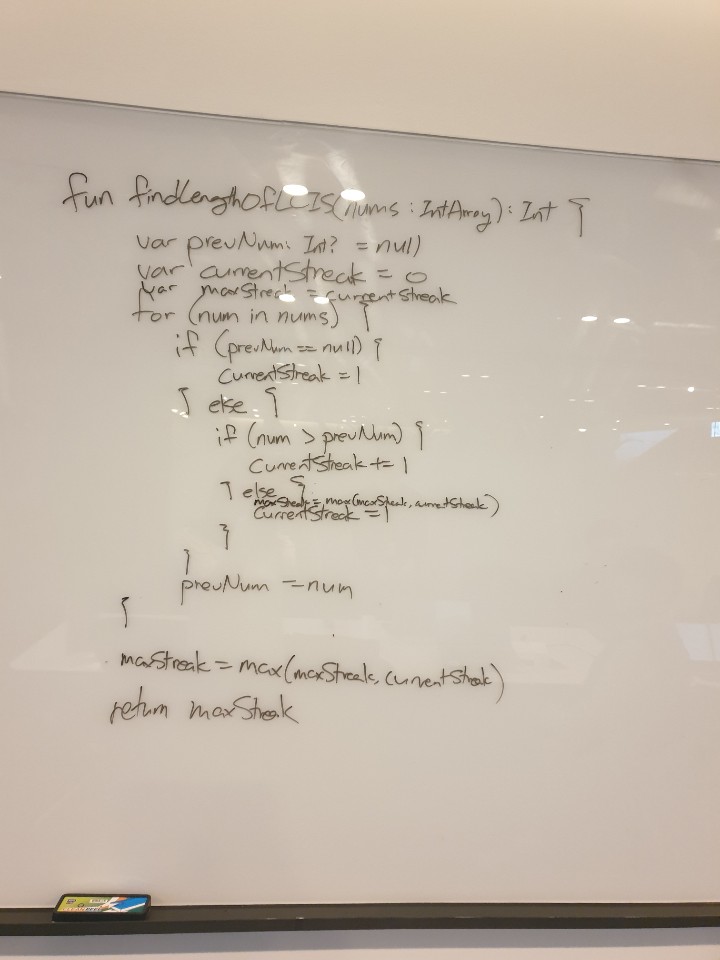 fun findLengthOfLCIS(nums : IntArray) : Int {
var prevNum: Int? = null)
var currentStreak = 0
var maxStreak = currentStreak
for (num in nums) {
if (prevNum == null) {
currentStreak = 1
} else {
if (num > prevNum) {
currentStreak += 1
} else {
maxStreak = max(maxStreak, currentStreak)
currentStreak = 1
}
}
prevNum = num
}
maxStreak = max(maxStreak, currentStreak)
return maxStreak